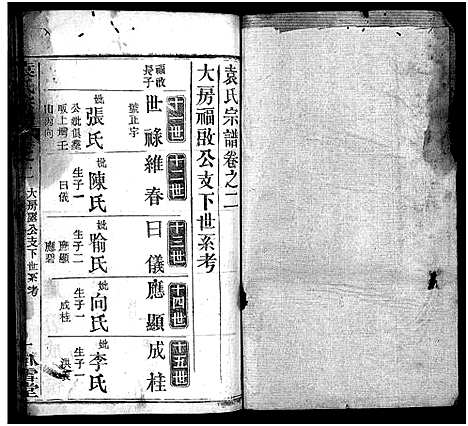 袁氏宗譜卷之二
大房福啟公支下世系考
十一世
福啟長子
世祿
號止宇
妣張氏
公妣俱葬
坂上塆壬
山丙向
十二世
維春
妣陳氏
生子一
日儀
十三世
日儀
妣喻氏
生子二
應顯
應碧
十四世
應顯
妣向氏
生子一
成桂
十五世
成桂
妣李氏
生子一
大房啟公支下世系考